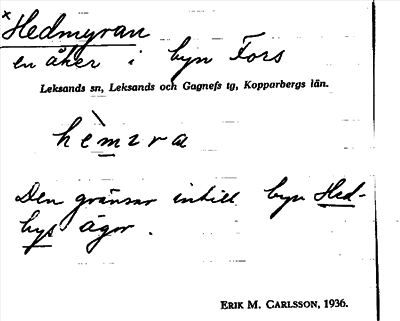 × Hedmyran
en åker i byn Fors
Leksands sn, Leksands och Gagnefs tg, Kopparbergs län.
Den gränsar intill byn Hed-
bys ägor.
ERIK M. CARLSSON, 1936.